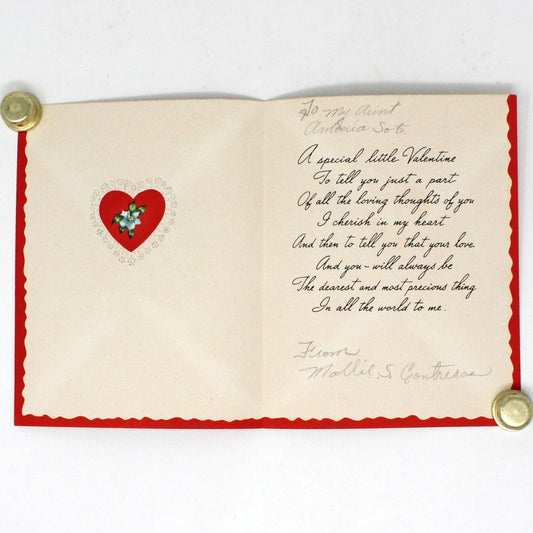 To My Aunt
Antonia Soto
A special little Valentine
To tell you just a part
Of all the loving thoughts of you
I cherish in my heart
And then to tell you that your love
And you-will always be
The dearest and most precious thing
In all the world to me.
From
Mollie S Contreras